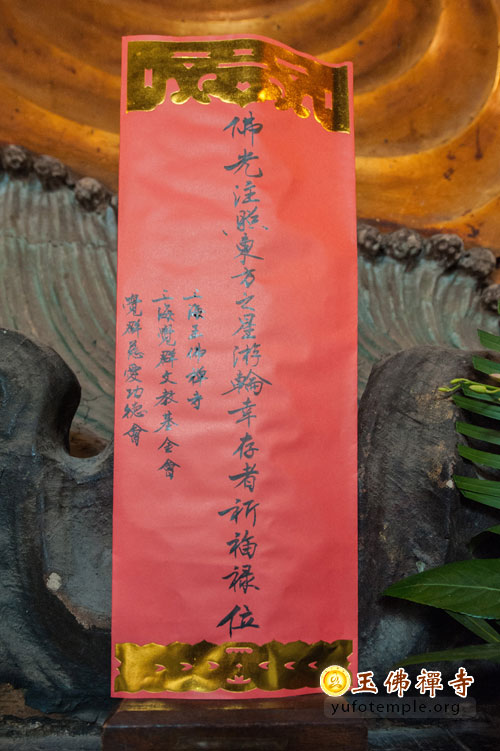 佛光注照東方之星游輪幸存者祈福禄位
上海玉佛禅寺
上海覺群文教基金會
覺群慈愛功德會
玉佛禪寺
yufotemple.org